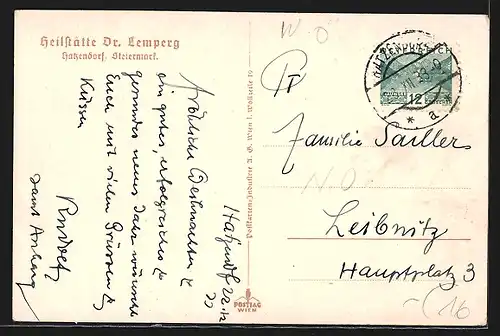 Heilstätte Dr. Lemperg
Hatzendorf, Steiermark.
Hatzendf 22.12
33
Fröhliche Weihnachten &
ein gutes, erfolgreiches &
gesundes neues Jahr wünscht
Euch mit vielen Grüssen &
Küssen
Rudolf
samt Anhang
Postkarten-Industrie A. G. Wien I. Wollzeile 19
POSTIAG
WIEN
W.Ö
HATZENDORF
33
12
* a
Familie Sailler
N.Ö.
Leibnitz
Hauptplatz 3
16